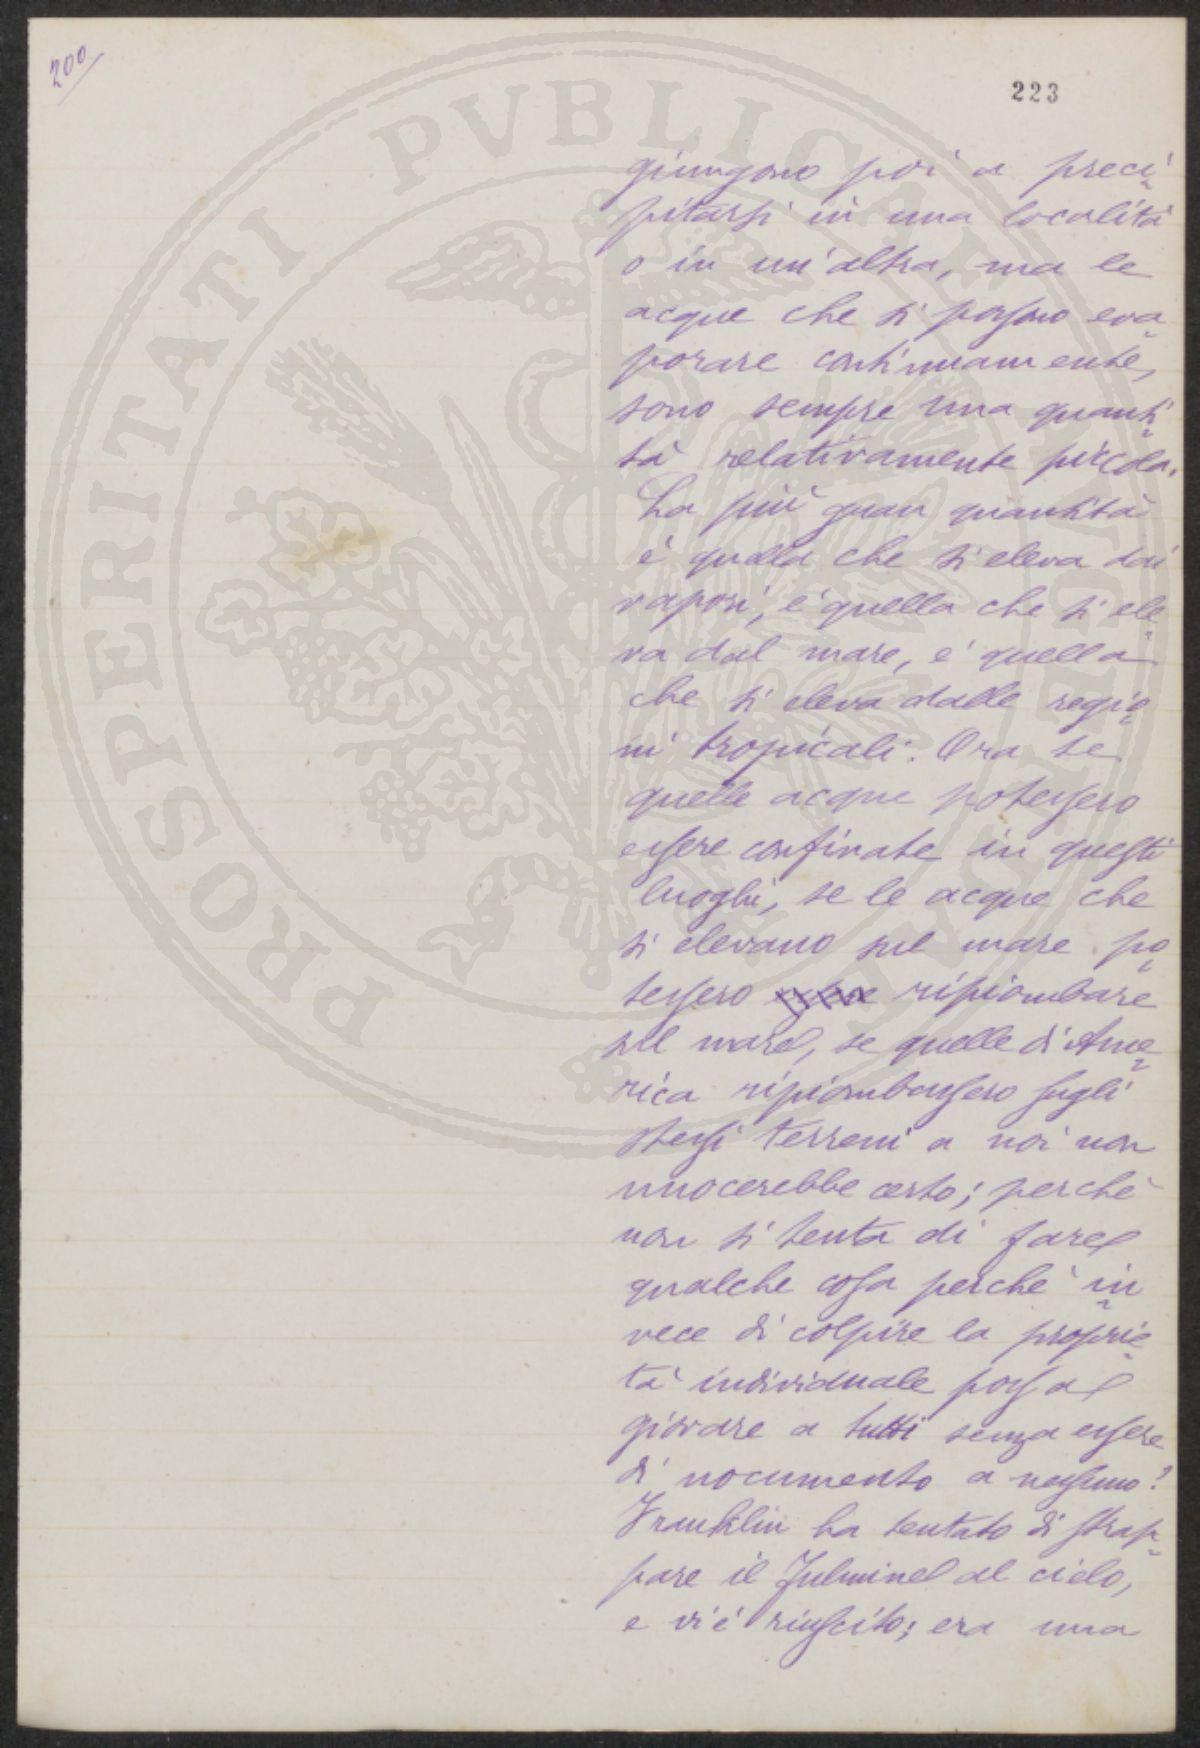 200
223
giungono poi a preci
pitarsi in una località
o in un'altra, ma le
acque che si possono eva
porare continuamente,
sono sempre una quanti
tà relativamente piccola.
La più gran quantità
è quella che si eleva dai
vapori, è quella che si ele
va dal mare, è quella
che si eleva dalle regio
ni tropicali. Ora se
quelle acque potessero
essere confinate in questi
luoghi, se le acque che
si elevano sul mare po
tessero ripiombare
sul mare, se quelle di Ame
rica ripiombassero sugli
stessi terreni a noi non
nuocerebbe certo; perchè
non si tenta di fare
qualche cosa perchè in
vece di colpire la proprie
tà individuale possa
giovare a tutti senza essere
di nocumento a nessuno?
Franklin ha tentato di strap
pare il fulmine al cielo,
e vi è riuscito; era una
PROSPERITATI PVBLICAE